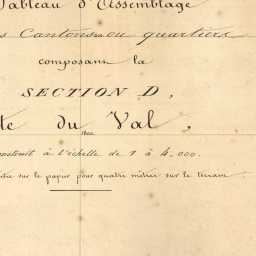 Tableau d'Assemblage
Cantons ou quartiers
composans la
SECTION D,
du Val,
à l'échelle de 1 à 4,000.
sur le papier pour quatre mètres sur le terrain